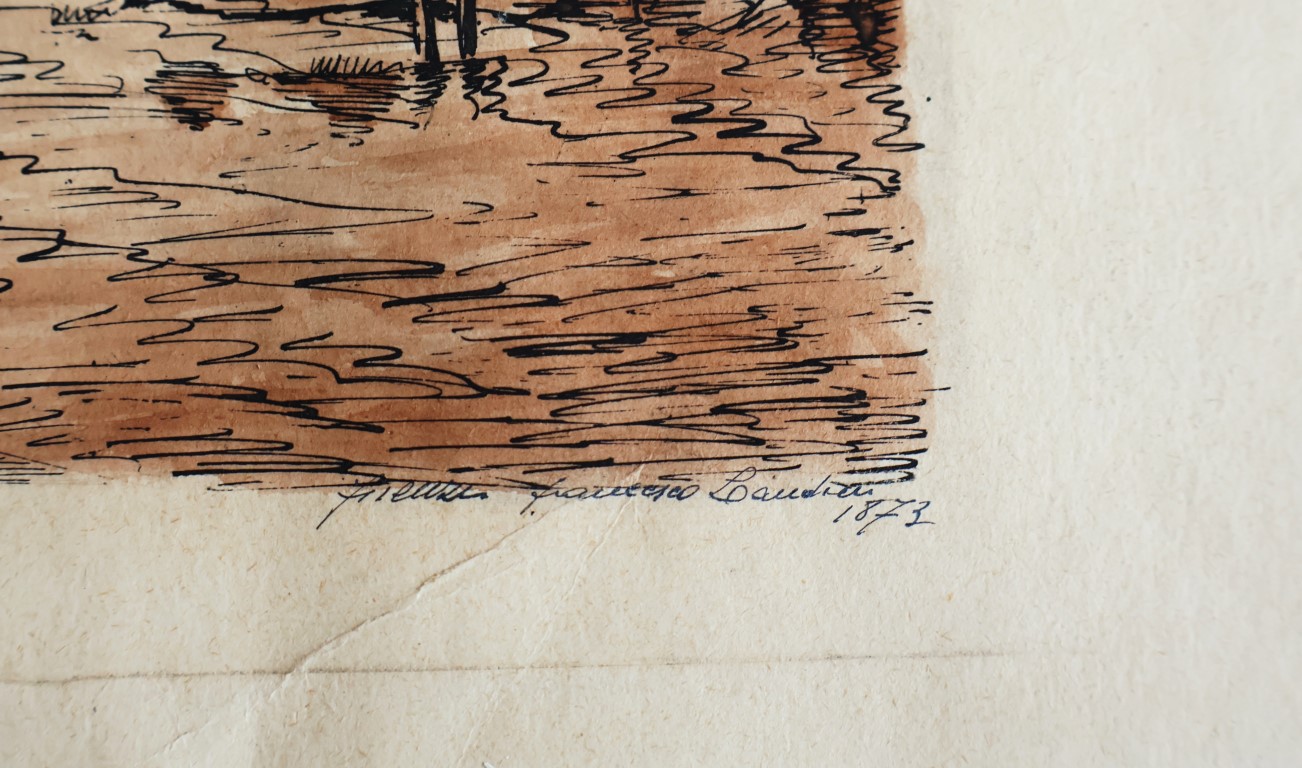 Firenze Francesco Landini
1873